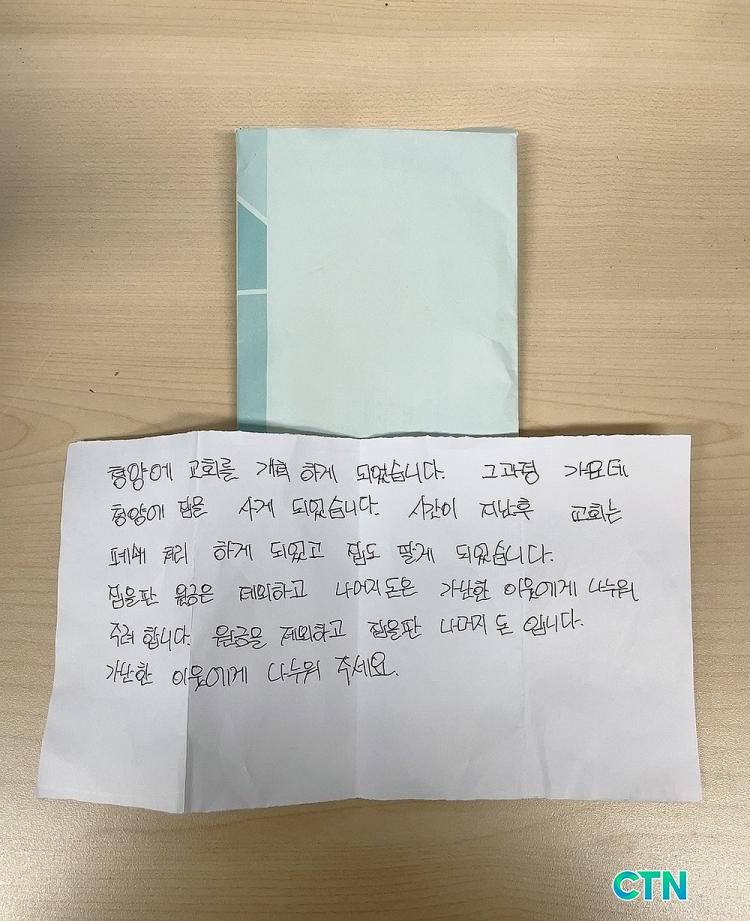 청양에 교회를 개척 하게 되었습니다. 그과정 가운데
청양에 집을 사게 되었습니다. 시간이 지난후 교회는
폐쇄 처리 하게 되었고 집도 팔게 되었습니다.
집을판 원금은 제외하고 나머지돈은 가난한 이웃에게 나누워
주려 합니다. 원금을 제외하고 집을판 나머지 돈 입니다.
가난한 이웃에게 나누워 주세요.
CTN